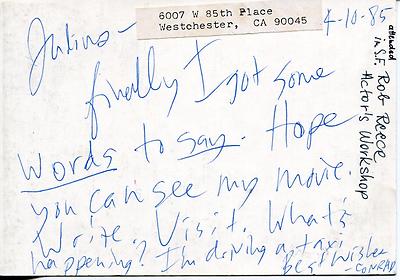 6007 W 85th Place
Westchester, CA 90045
4-10-85
Julius-
finally I got some
words to say. Hope
you can see my movie.
Write. Visit. What's
happening? I'm driving a taxi.
Best Wishes
CONRAD
attended
in S.F. Bob Reece
Actor's Workshop